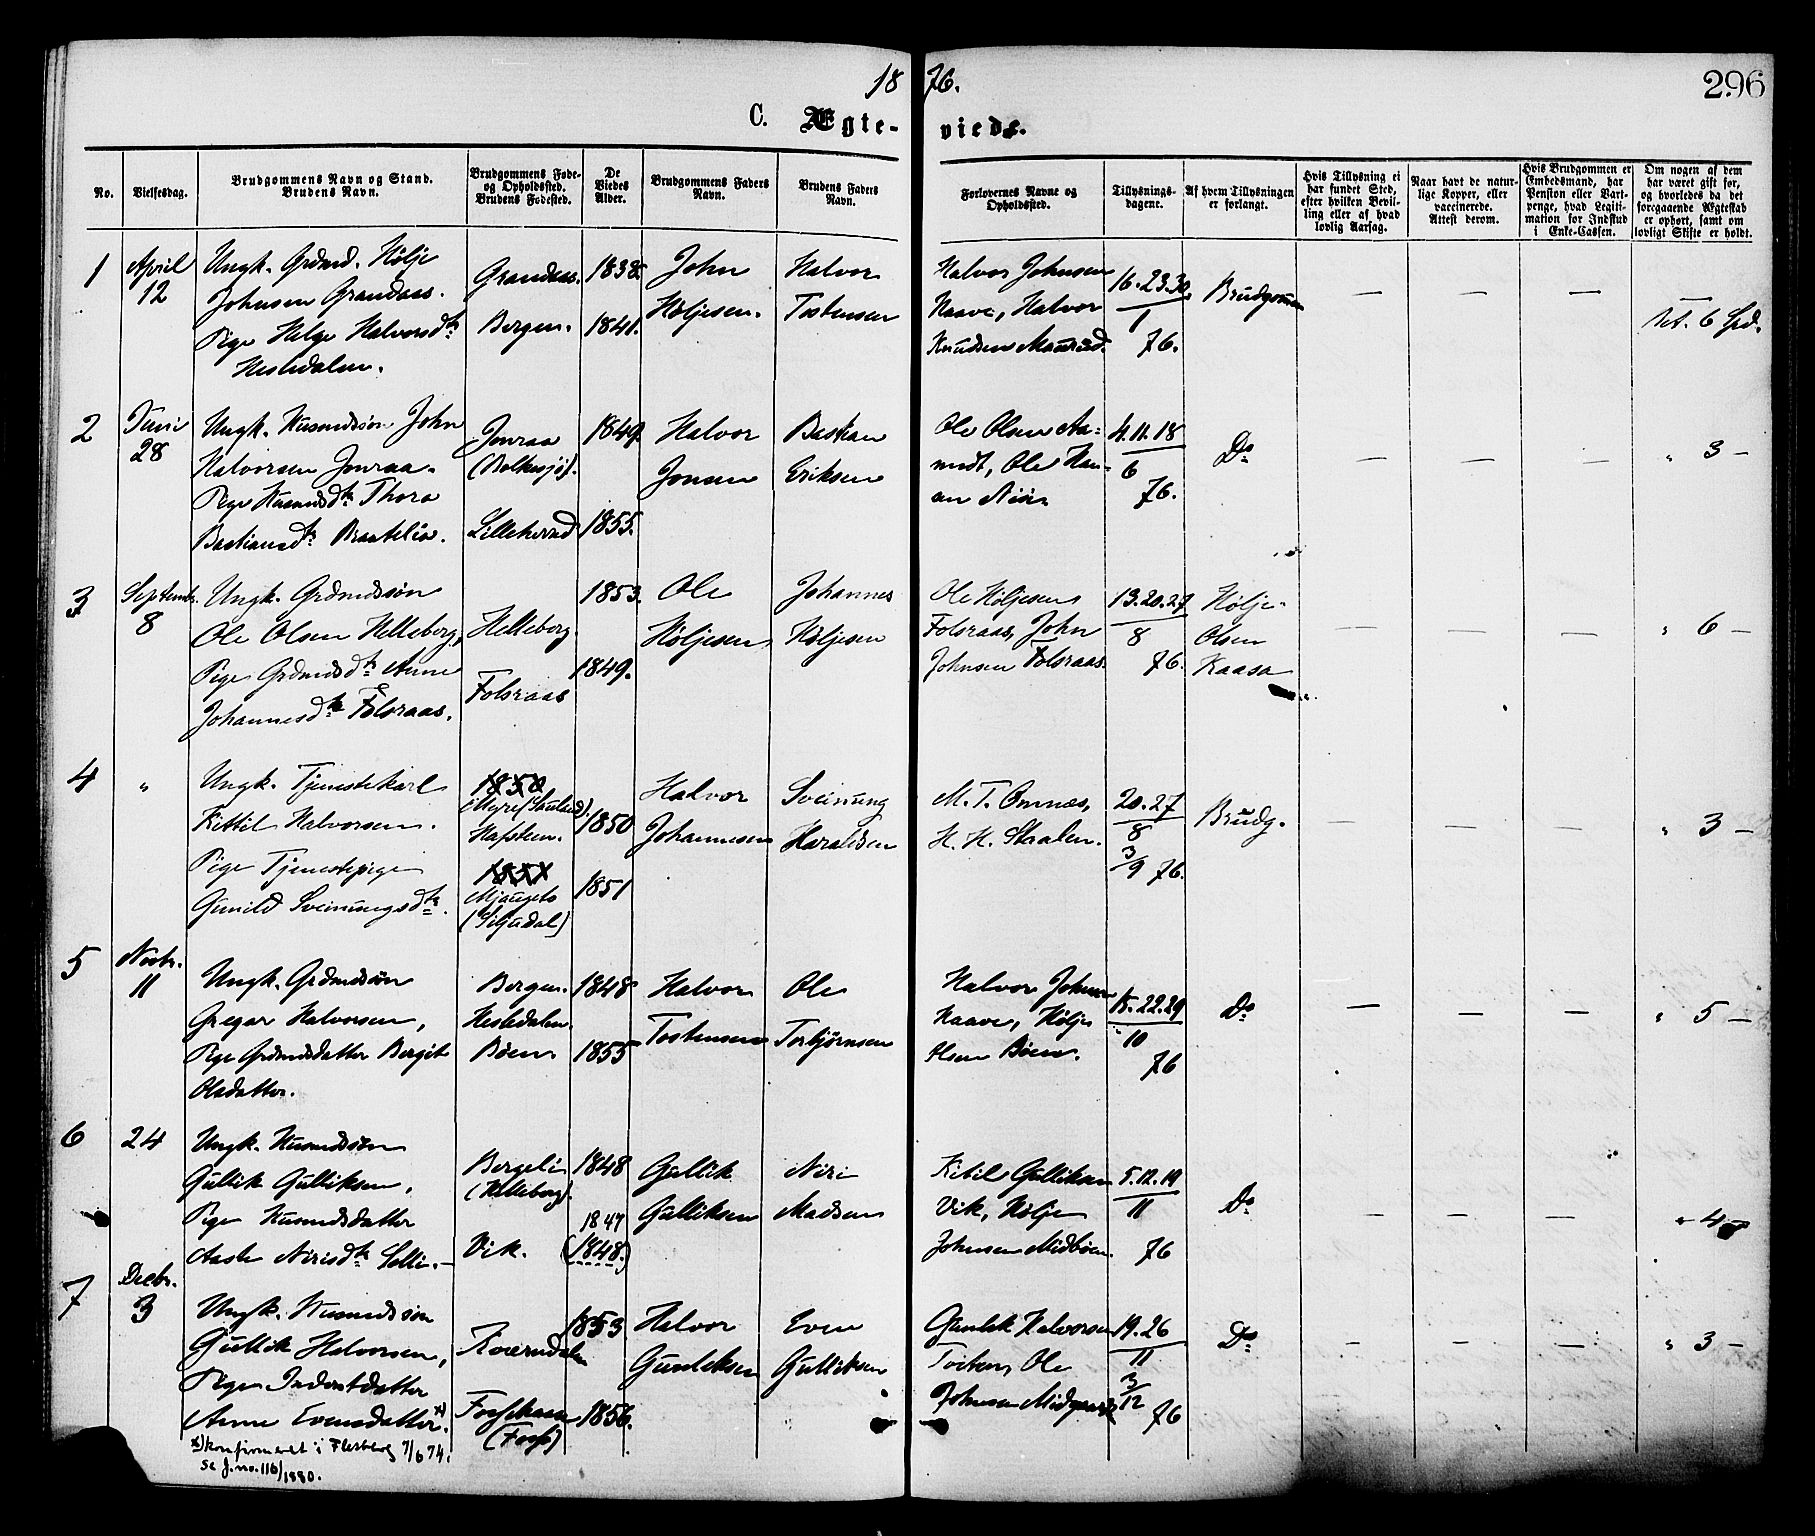 1876.
296
C. Ægteviede.
No.
Vielsesdag.
Brudgommens Navn og Stand.
Brudens Navn.
Brudgommens Føde-
og Opholdssted.
Brudens Fødested.
De
Viedes
Alder.
Brudgommens Faders
Navn.
Brudens Faders
Navn.
Forlovernes Navne og
Opholdssted.
Tillysnings-
dagene.
Af hvem Tillysningen
er forlangt.
Hvis Tillysning ei
har fundet Sted,
efter hvilken Bevil-
ling eller af hvad
lovlig Aarsag.
Naar havt de natur-
lige Kopper, eller
vaccinerede.
Attest derom.
Hvis Brudgommen er
Embedsmand, har
Pension eller Vart-
penge, hvad Legiti-
mation for Indskud
i Enke-Cassen.
Om nogen af dem
har været gift før,
og hvorledes da det
foregaaende Ægteskab
er ophørt, samt om
lovligt Skifte er holdt.
1
April
12
Ungk. Grdmd. Hølje
Johnsen Grandaas.
Pige Helge Halvorsdtr
Hestedalen.
Grandaas.
Bergen.
1838.
1841.
John
Høljesen.
Halvor
Tostensen
Halvor Johnsen
Kaave, Halvor
Knudsen Maurud.
16. 23. 30.
1
76.
Brudgommen
— — —
6 Spd.
2
Juni
28
Ungk. Husmdssøn John
Halvorsen Jonraa.
Pige Husmdsdtr Thora
Bastiansdtr Braatelia.
Jonraa
(Bolkesjø).
Lilleherred
1849.
1855.
Halvor
Jonsen
Bastian
Eriksen
Ole Olsen Aa-
modt, Ole Han-
4. 11. 18
6
76.
Do
— — —
" 3 —
3
Septembr.
8
Ungk. Grdmdssøn
Ole Olsen Helleberg,
Pige Grdmdsdtr Anne
Johannesdtr Folsraas.
Helleberg.
Folsraas
1853.
1849.
Ole
Høljesen
Johannes
Høljesen
Ole Høljesen
Folsraas, John
Johnsen Folsraas.
13. 20. 27
8
76.
Hølje
Olsen
Kaasa
— — —
" 6 —
4
"
Ungk. Tjenestekarl
Kittil Halvorsen.
Pige Tjenestepige
Gunild Sveinungsdtr.
1850
Hafsten.
1851
Mjaugeto
(Siljudal)
1850
1851
Halvor
Johannesen
Sveinung
Haraldsen
M. T. Omnæs,
H. H. Skaalen.
20. 27
8
3
9 76.
Brudg.
— — —
" 3 —
5
Novbr.
11
Ungk. Grdmdssøn
Gregar Halvorsen,
Pige Grdmdsdatter Bergit
Olsdatter.
Bergen.
Hestedalen.
Bøen
1848
1855
Halvor
Tostensen
Ole
Torbjørnsen
Halvor Johnsen
Kaave, Hølje
Olsen Bøen.
15. 22. 29
10
76
Do
— — —
" 5 —
6
24
Ungk. Husmdssøn
Gullik Gulliksen,
Pige Husmdsdatter
Aaste Nirisdtr Lolli.
Bergeli
(Helleberg).
Vik.
1848
1847
(1848.)
Gullik
Gulliksen
Niri
Madsen
Kitil Gulliksen
Vik, Hølje
Johnsen Midbøen.
5. 12. 19
11
76
Do
— — —
" 4 —
7
Decbr.
3
Ungk. Husmdssøn
Gullik Halvorsen,
Pige Inderstdatter
Anne Evensdatter. x)
Kverndalen
Fosskaasa
(Foss)
1853
1856.
Halvor
Gunleksen
Even
Gulliksen
Gunlek Halvorsen
Tosten, Ole
Johnsen Midgaard
19. 26
11
3
12
76
Do
— — —
" 3 —
x) konfirmeret i Flesberg 7/6 74.
se J. no. 116/1880.